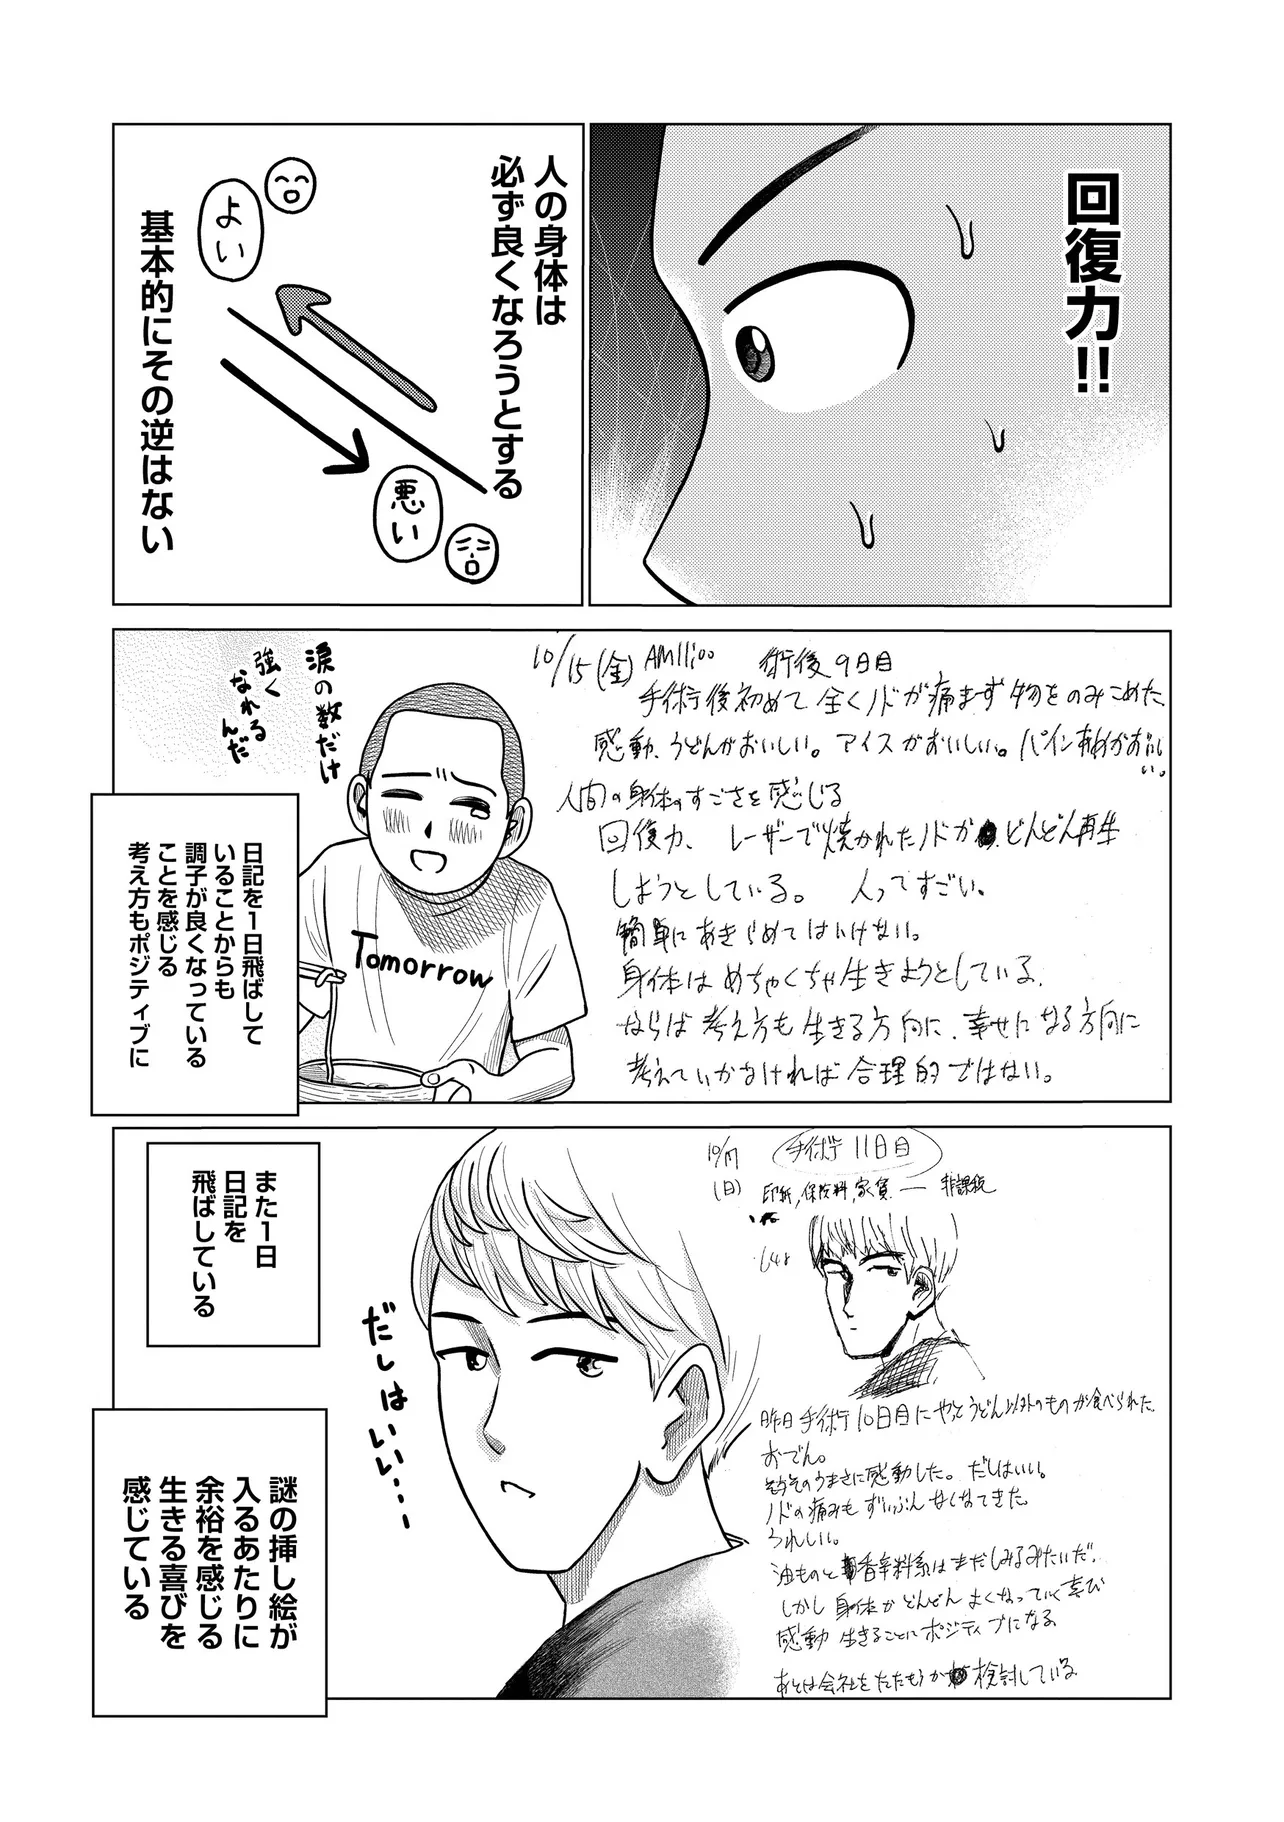 回復力!!
人の身体は
必ず良くなろうとする
よい
悪い
基本的にその逆はない
10/15(金) AM11:00 術後9日目
手術後初めて全くノドが痛まず物をのみこめた
感動、うどんがおいしい。アイスがおいしい。パインあめがおいしい。
人間の身体のすごさを感じる
回復力、レーザーで焼かれたノドがどんどん再生
しようとしている。人ってすごい。
簡単にあきらめてはいけない。
身体はめちゃくちゃ生きようとしている。
ならば考え方も生きる方向に、幸せになる方向に
考えていかなければ合理的ではない。
涙の数だけ
強く
なれる
んだ
Tomorrow
日記を1日飛ばして
いることからも
調子が良くなっている
ことを感じる
考え方もポジティブに
10/17(日) 手術11日目
印紙,保険料,家賃 ― 非課税
昨日手術10日目にやっとうどん以外のものが食べられた。
おでん。
そのうまさに感動した。だしはいい。
ノドの痛みもずいぶんなくなってきた。
うれしい。
油ものと香辛料系はまだしみるみたいだ。
しかし身体がどんどんよくなっていく喜び
感動 生きることにポジティブになる
あとは会社をたたもうか検討している
だしはいい・・・・
また1日
日記を
飛ばしている
謎の挿し絵が
入るあたりに
余裕を感じる
生きる喜びを
感じている